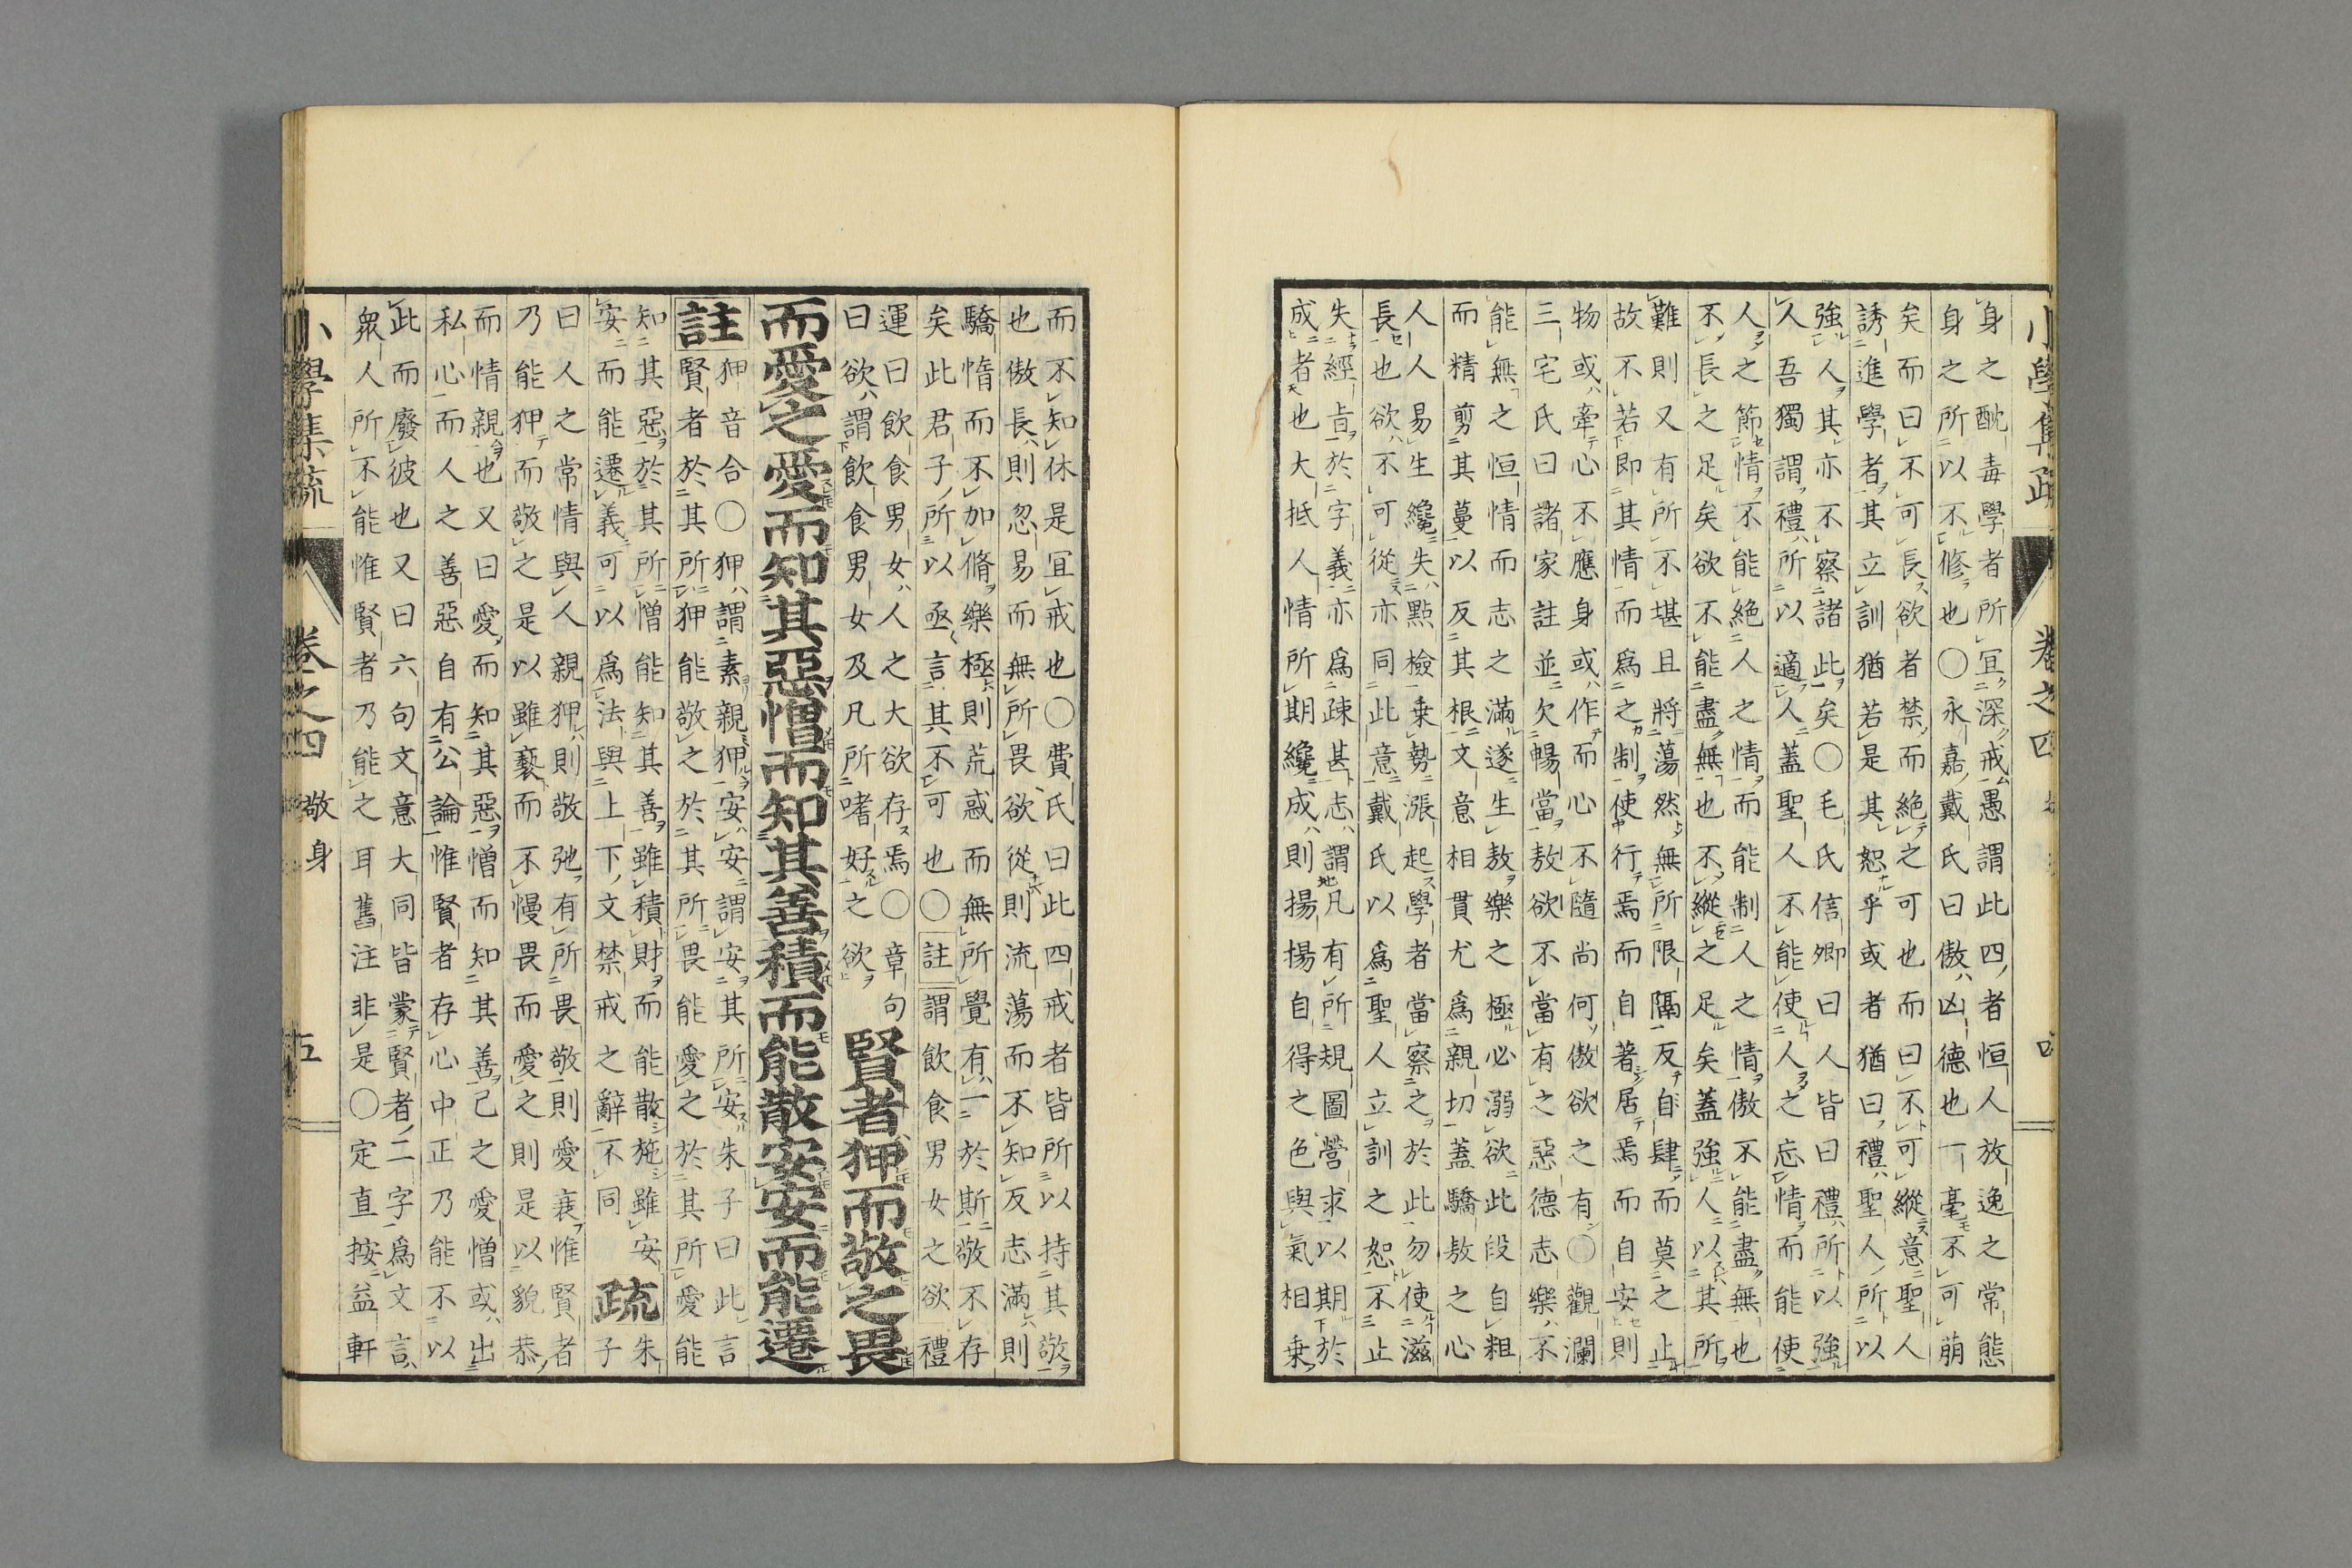 小學集疏 卷之四 四
身之酖毒學者所宜深戒愚謂此四者恒人放逸之常態
身之所以不修也○永嘉戴氏曰傲凶德也一毫不可萠
矣而曰不可長欲者禁而絕之可也而曰不可縱意聖人
誘進學者其立訓猶若是其恕乎或者猶曰禮聖人所以
強人其亦不察諸此矣○毛氏信卿曰人皆曰禮所以強
人吾獨謂禮所以適人蓋聖人不能使人之忘情而能使
人之節情不能絕人之情而能制人之情傲不能盡無也
不長之足矣欲不能盡無也不縱之足矣蓋強人以其所
難則又有所不堪且將蕩然無所限隔反自肆而莫之止
故不若即其情而爲之制使行焉而自著居焉而自安則
物或牽心不應身或作而心不隨尚何傲欲之有○觀瀾
三宅氏曰諸家註並欠暢當敖欲不當有之惡德志樂不
能無之恒情而志之滿遂生敖樂之極必溺欲此段自粗
而精剪其蔓以反其根文意相貫尤爲親切蓋驕敖之心
人人易生纔失點檢乗勢漲起學者當察之於此勿使滋
長也欲不可從亦同此意戴氏以爲聖人立訓之恕不止
失經旨於字義亦爲疎甚志謂凡有所規圖營求以期於
成者也大抵人情所期纔成則揚揚自得之色與氣相乗
而不知休是宜戒也○費氏曰此四戒者皆所以持其敬
也傲長則忽易而無所畏欲從則流蕩而不知反志滿則
驕惰而不加脩樂極則荒惑而無所覺有一於斯敬不存
矣此君子所以亟言其不可也○註謂飲食男女之欲禮
運曰飲食男女人之大欲存焉○章句
曰欲謂飲食男女及凡所嗜好之欲
賢者狎而敬之畏
而愛之愛而知其惡憎而知其善積而能散安安而能遷
註
狎音合○狎謂素親狎安安謂安其所安朱子曰此言
賢者於其所狎能敬之於其所畏能愛之於其所愛能
知其惡於其所憎能知其善雖積財而能散施雖安
安而能遷義可以爲法與上下文禁戒之辭不同
疏
朱
子
曰人之常情與人親狎則敬弛有所畏敬則愛衰惟賢者
乃能狎而敬之是以雖褻而不慢畏而愛之則是以貌恭
而情親也又曰愛而知其惡憎而知其善己之愛憎或出
私心而人之善惡自有公論惟賢者存心中正乃能不以
此而廢彼也又曰六句文意大同皆蒙賢者二字爲文言
衆人所不能惟賢者乃能之耳舊注非是○定直按益軒
小學集疏 卷之四 敬身 五